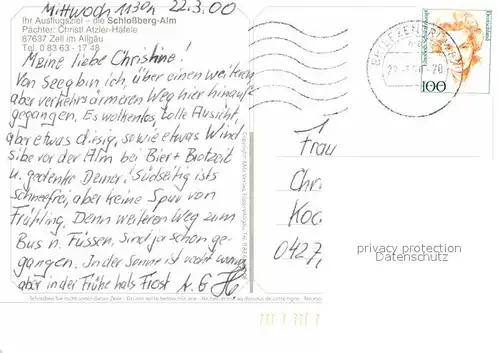 Mittwoch 1130h 22.3.00
Ihr Ausflugsziel – die Schloßberg-Alm
Pächter: Christl Atzler-Häfele
87637 Zell im Allgäu
Tel. 0 83 63 - 17 48
Meine liebe Christine!
Von Seeg bin ich, über einen weiteren,
aber verkehrsärmeren Weg hier hinauf
gegangen. Es wolkenlos, tolle Aussicht,
aber etwas diesig, sowie etwas Wind
sitze vor der Alm bei Bier + Brotzeit
u. gedenke Deiner! Südseitig ists
schneefrei, aber keine Spur von
Frühling. Denn weiteren Weg zum
Bus n. Füssen, sind ja schon ge-
gangen. In der Sonne ist
aber in der Frühe
BRIEFZENTRUM
100
Frau
Chr
Koc
0427
privacy protection
Datenschutz